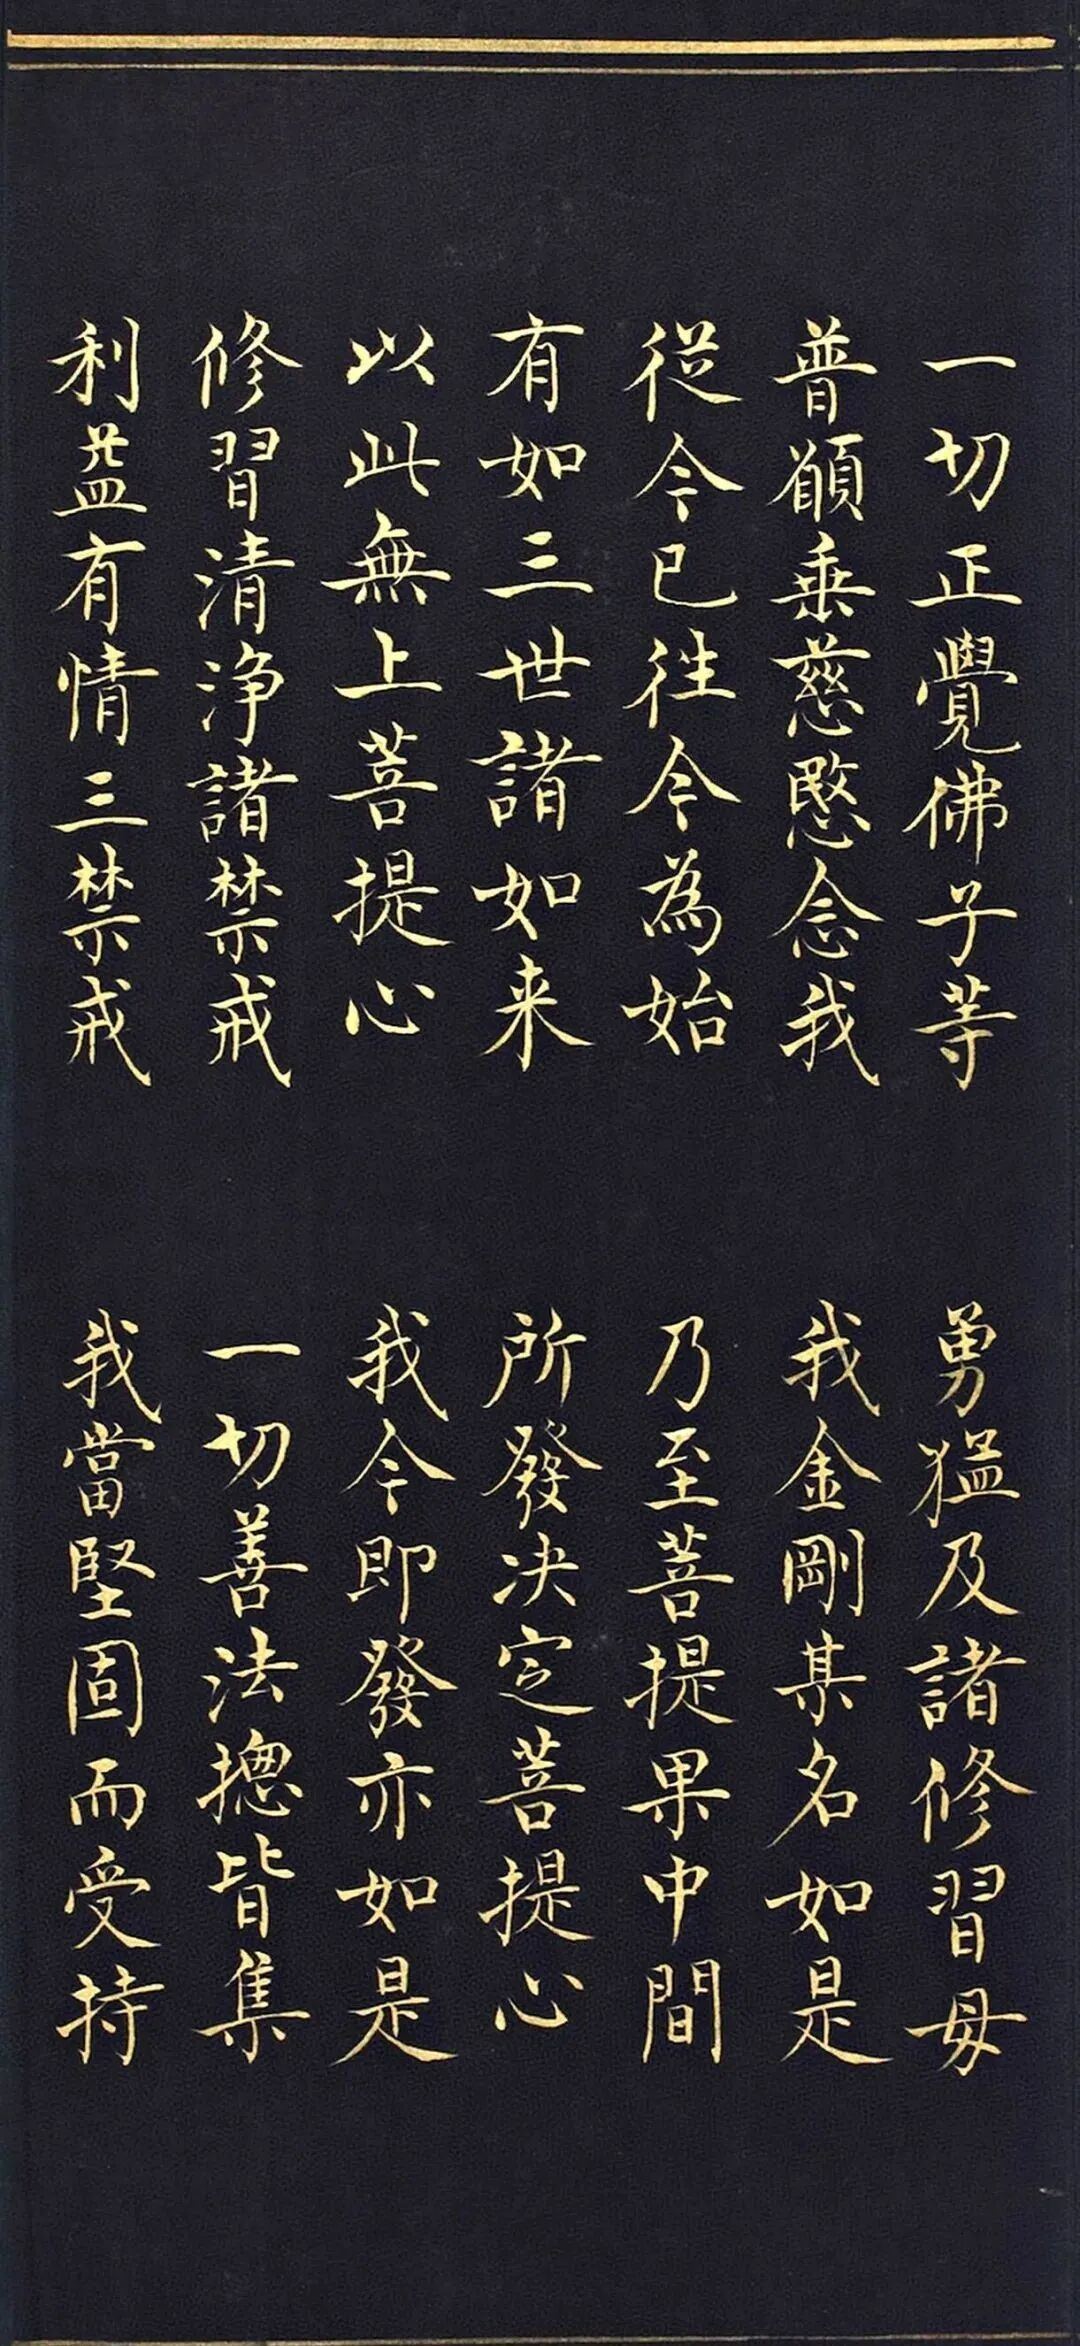 一切正覺佛子等 勇猛及諸修習毋
普願乗慈愍念我 我金剛某名如是
從今已往今為始 乃至菩提果中間
有如三世諸如来 所發决定菩提心
以此無上菩提心 我今即發亦如是
修習清淨諸禁戒 一切善法摠皆集
利益有情三禁戒 我當堅固而受持